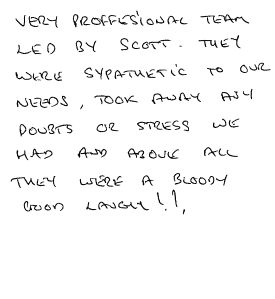 VERY PROFFESIONAL TEAM
LED BY SCOTT. THEY
WERE SYPATHETIC TO OUR
NEEDS, TOOK AWAY ANY
DOUBTS OR STRESS WE
HAD AND ABOVE ALL
THEY WERE A BLOODY
GOOD LAUGH!!,